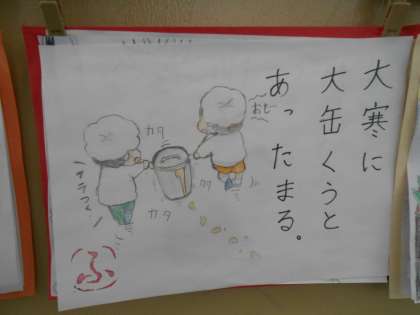 大寒に
大缶くうと
あったまる。
おし〜
カタ
カタ
カタ
ふ